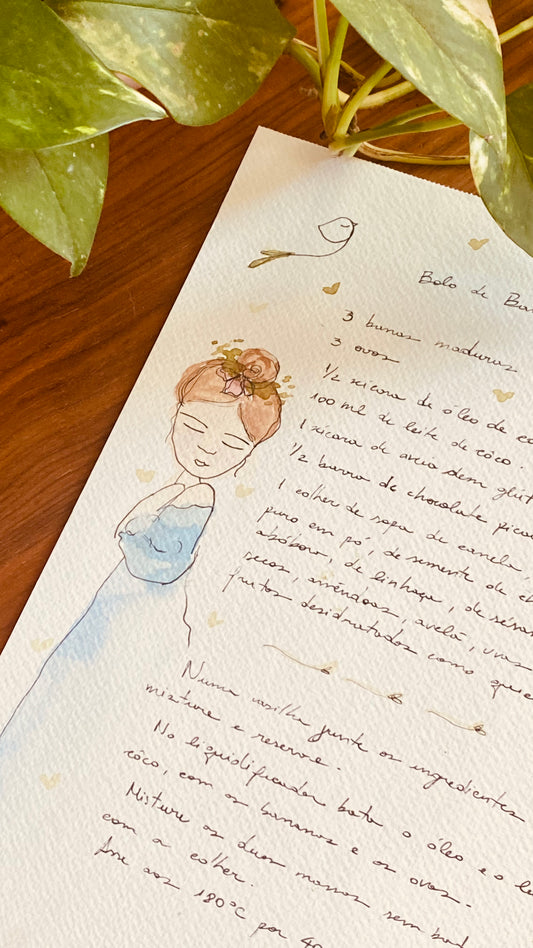 Bolo de Ban
3 banas maduras
3 ovos
1/2 xícara de óleo de co
100 ml de leite de côco.
1 xícara de aveia sem glút
1/2 barra de chocolate pica
1 colher de sopa de canela,
puro em pó, de semente de
abóbora, de linhaça, de sésam
secos, amêndoas, avelã, uvas
frutos desidratados como quei
Numa vasilha junte os ingredientes
misture e reserve.
No liquidificador bata o óleo e o le
côco, com as bananas e os ovos.
Misture as duas massas sem bat
com a colher.
Asse aos 180°C por 40